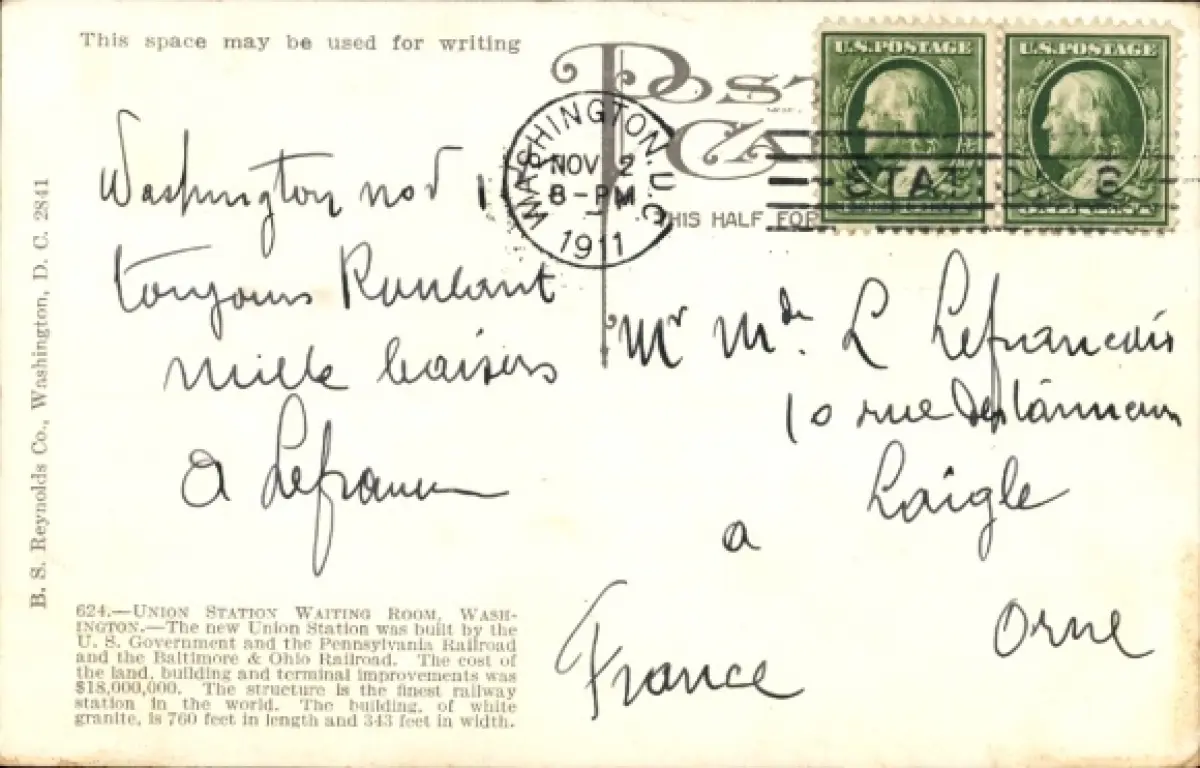 This space may be used for writing
POST
CA
THIS HALF FOR
U.S. POSTAGE
U.S. POSTAGE
WASHINGTON, D.C.
NOV 2
8-PM
1911
STA
Washington nov 1
toujours Roulant
mille baisers
A Lefran
Mr Mde. L Lefrancois
10 rue des tanneurs
a Laigle
Orne
France
B. S. Reynolds Co., Washington, D. C. 2841
624.—UNION STATION WAITING ROOM, WASH-
INGTON.—The new Union Station was built by the
U. S. Government and the Pennsylvania Railroad
and the Baltimore & Ohio Railroad. The cost of
the land, building and terminal improvements was
$18,000,000. The structure is the finest railway
station in the world. The building, of white
granite, is 760 feet in length and 343 feet in width.